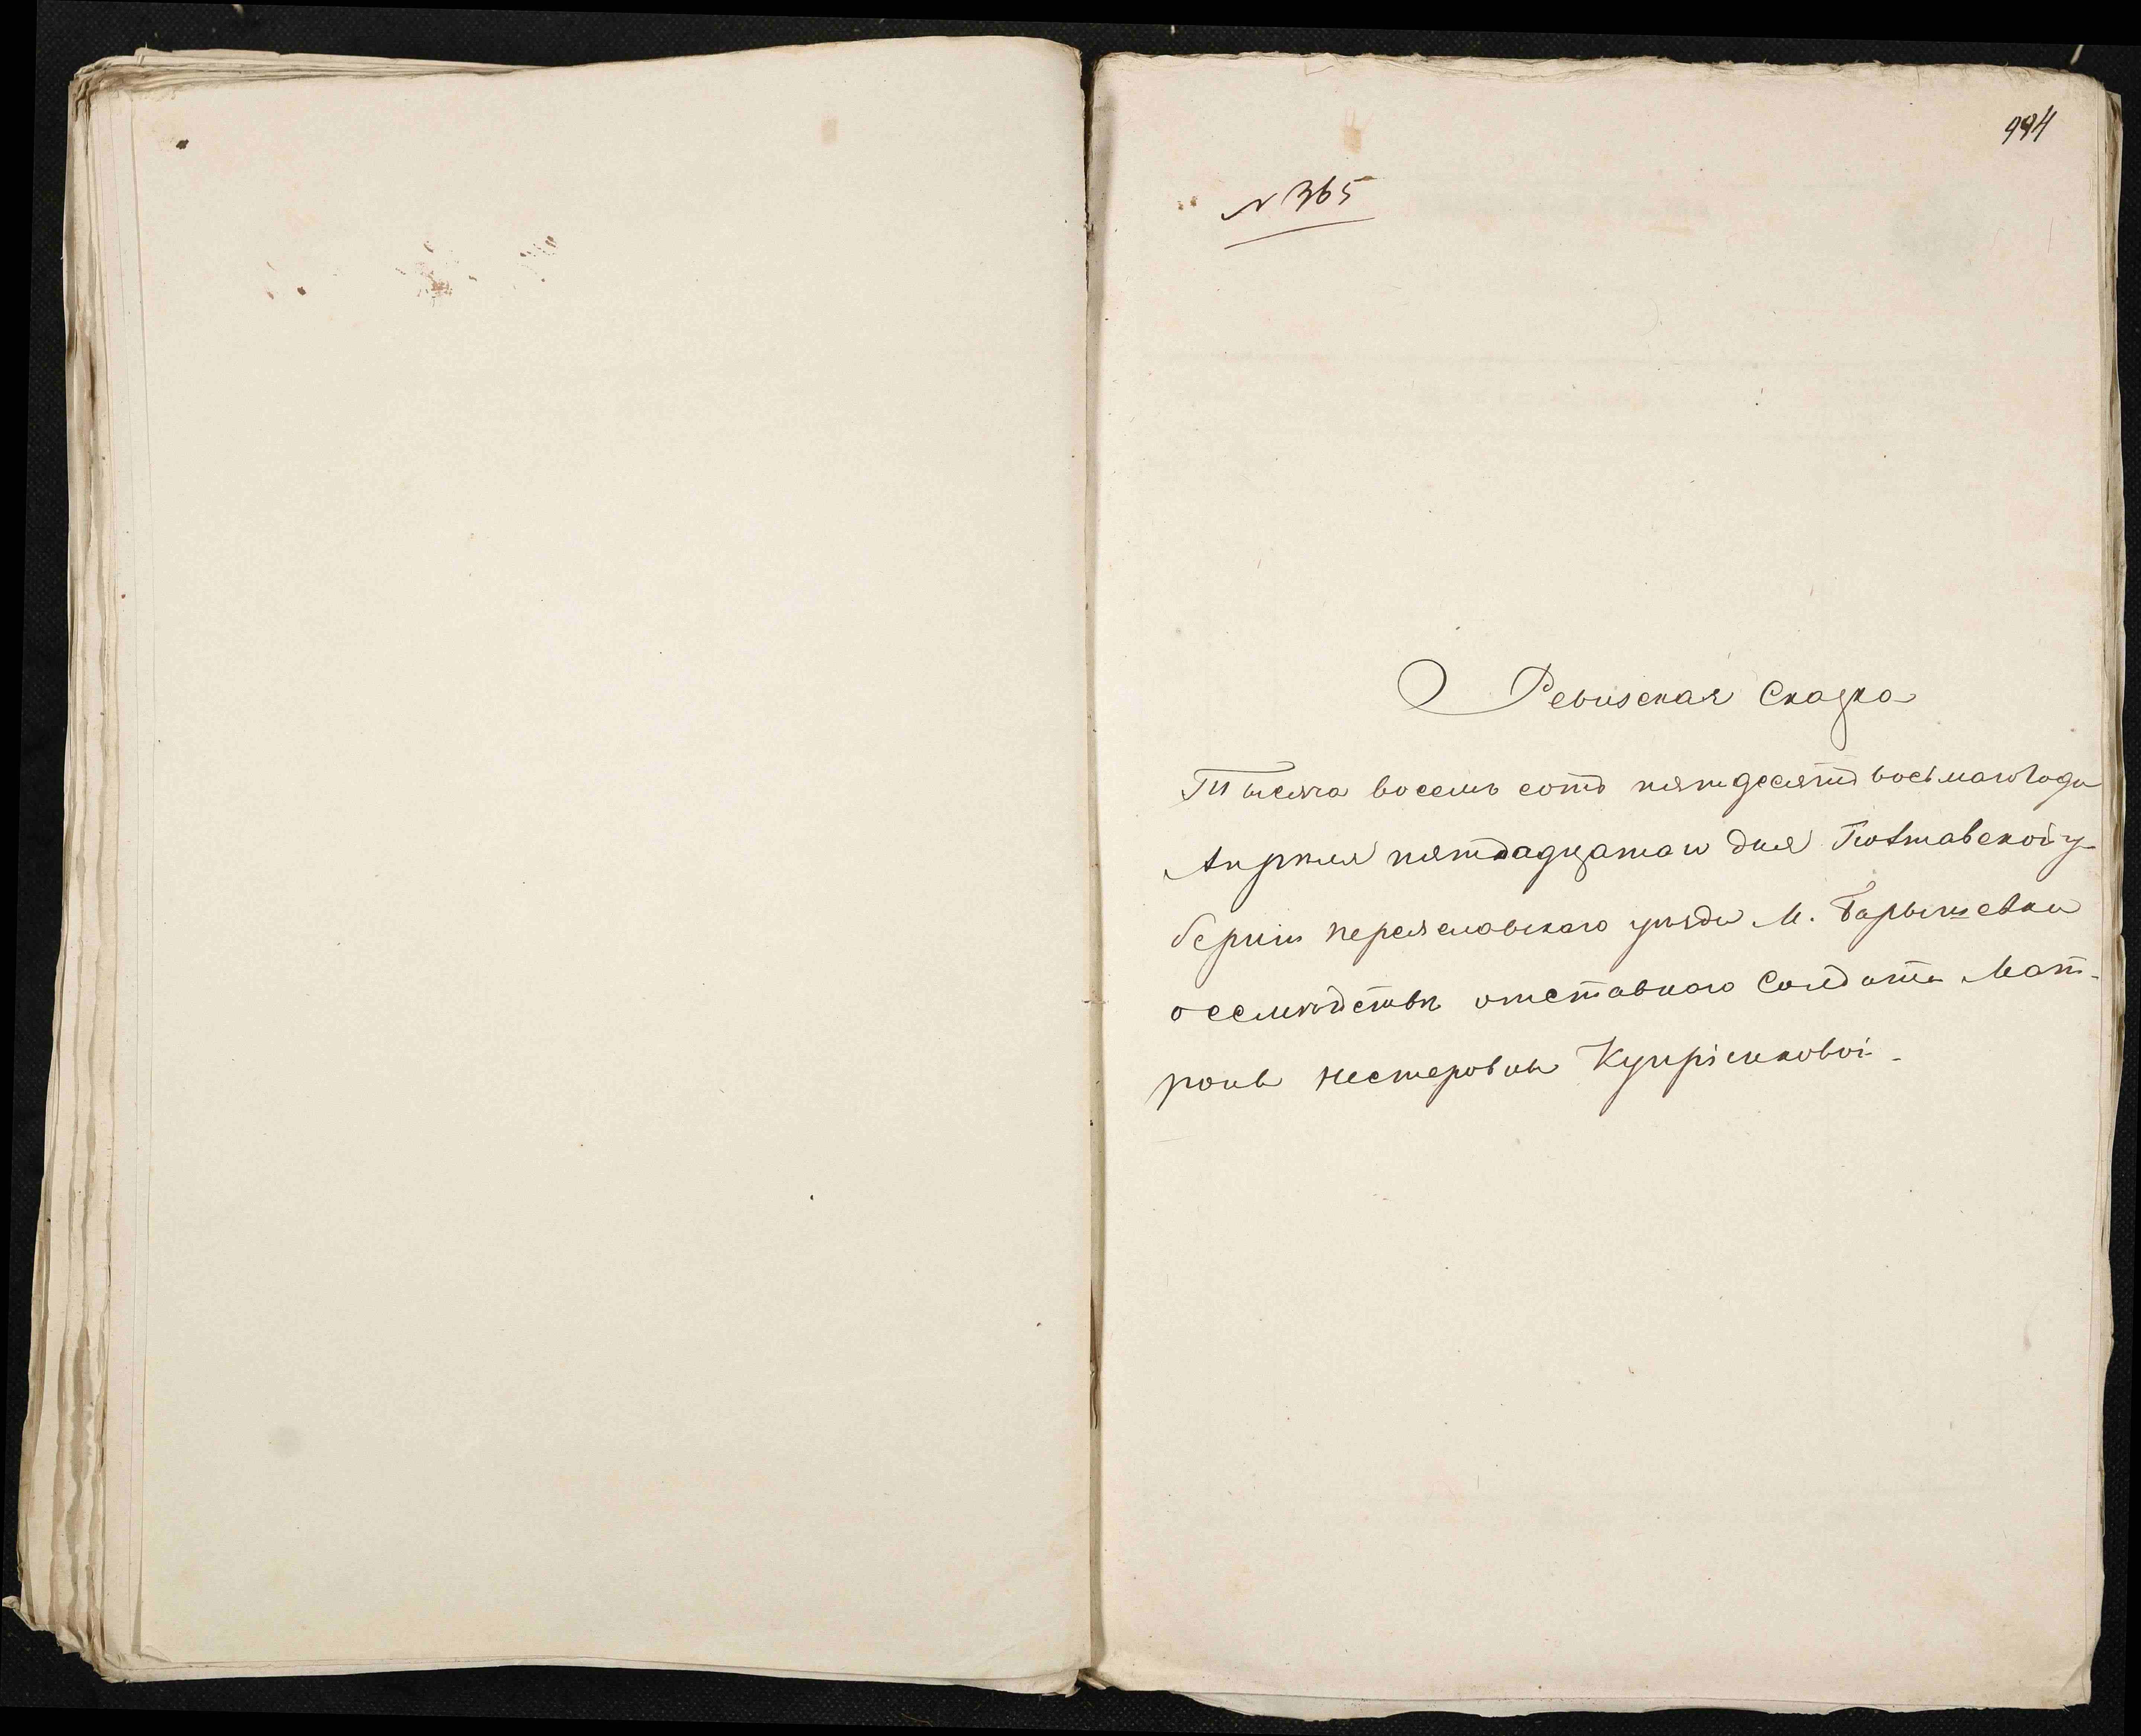 994
N 365
Ревизская Сказка
Тысяча восемь сотъ пятдесятъ восьмаго Года
Апреля пятнадцатаго дня Полтавской гу
берніи переяславскаго уезда М. Барышевки
о семействе отставнаго Солдата Мат-
роны нестеровны Купріенковой